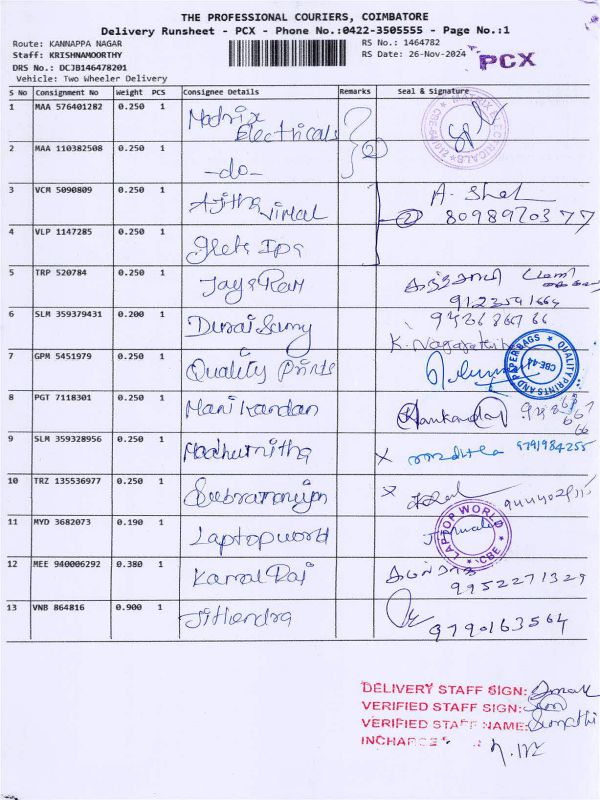 THE PROFESSIONAL COURIERS, COIMBATORE
Delivery Runsheet - PCX - Phone No.:0422-3505555 - Page No.:1
Route: KANNAPPA NAGAR
RS No.: 1464782
Staff: KRISHNAMOORTHY
RS Date: 26-Nov-2024
PCX
DRS No.: DCJB146478201
Vehicle: Two Wheeler Delivery
S No Consignment No Weight PCS Consignee Details Remarks Seal & Signature
1 MAA 576401282 0.250 1 Matrix Electricals
MATRIX ELECTRICALS
2 MAA 110382508 0.250 1 -do- 2
3 VCM 5090809 0.250 1 Ajitha Vimal 2 8098970377
4 VLP 1147285 0.250 1
5 TRP 520784 0.250 1 Jaya Ram
6 SLM 359379431 0.200 1 Durai Samy
7 GPM 5451979 0.250 1 Quality Prints
QUALITY PRINTS AND PAPERBAGS CBE-44
8 PGT 7118301 0.250 1 Manikandan
9 SLM 359328956 0.250 1 Madhumitha X 9791984255
10 TRZ 135536977 0.250 1 Subramaniyan X
11 MYD 3682073 0.190 1 Laptop world
LAPTOP WORLD CBE
12 MEE 940006292 0.380 1 Kamal Raj 9952271329
13 VNB 864816 0.900 1 Jithendra 9790163564
DELIVERY STAFF SIGN:
VERIFIED STAFF SIGN:
VERIFIED STAFF NAME: Sumathi
INCHARGE